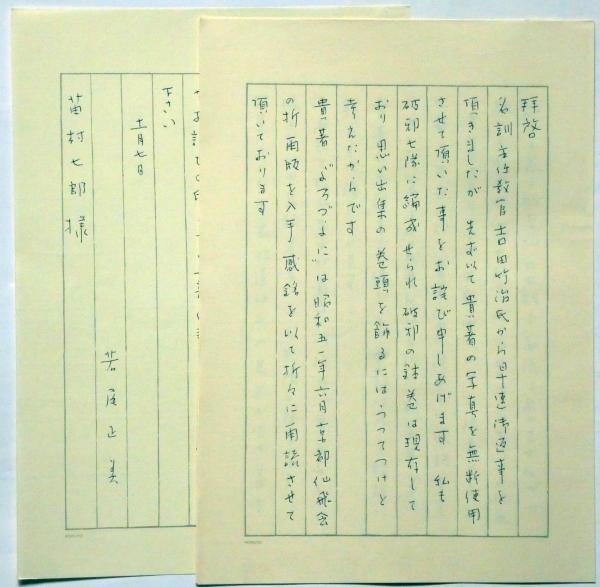 拝啓
名訓主任教官吉田竹治氏から早速御返事を
頂きましたが 先ず以て貴著の写真を無断使用
させて頂いた事をお詫び申しあげます 私も
破邪七隊に編成せられ 破邪の鉢巻は現存して
おり 思い出集の巻頭を飾るにはうってつけと
考えたからです
貴著 "よろづよに"は昭和五一年六月京都仙飛会
の折 再版を入手 感銘を以て折々に再読させて
頂いております
下さい
十一月七日
若尾正美
苗村七郎様
KOKUYO